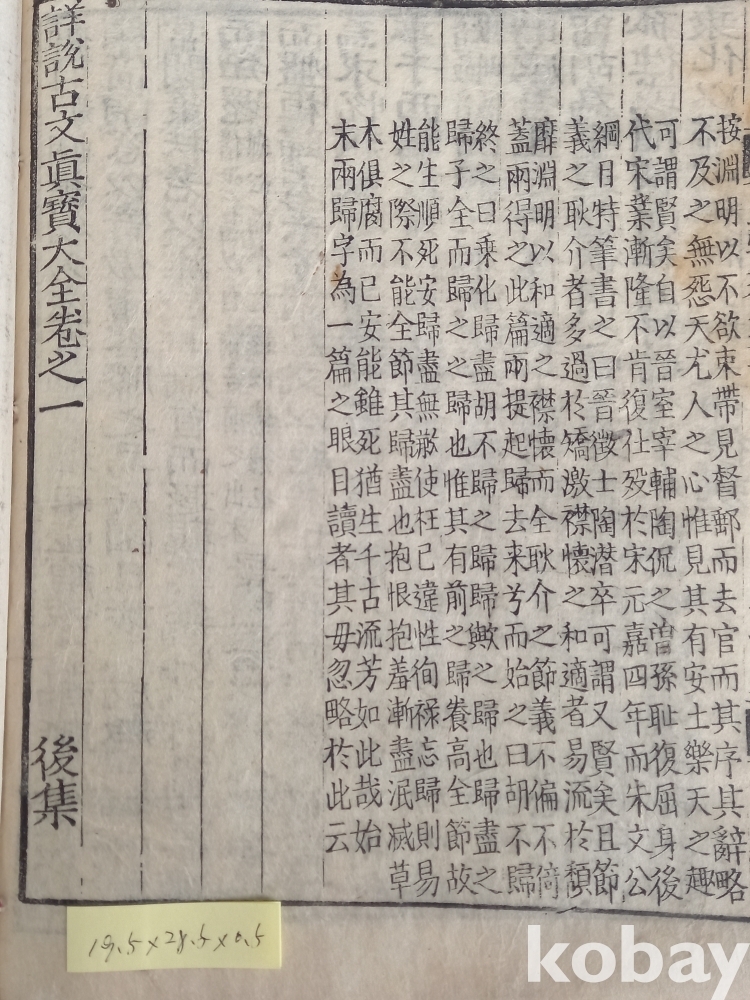 按淵明以不欲束帶見督郵而去官而其序其辭略
不及之無怨天尤人之心惟見其有安土樂天之趣
可謂賢矣自以晉室宰輔陶侃之曾孫恥復屈身後
代宋業漸隆不肯復仕歿於宋元嘉四年而朱文公
綱目特筆書之曰晉徵士陶潜卒可謂又賢矣且節
義之耿介者多過於矯激襟懷之和適者易流於頹
靡淵明以和適之襟懷而全耿介之節義不偏不倚
蓋兩得之此篇兩提起歸去来兮而始之曰胡不歸
終之曰乗化歸盡胡不歸之歸歸歟之歸也歸盡之
歸子全而歸之之歸也惟其有前之歸養高全節故
能生順死安歸盡無憾使枉已違性徇禄忘歸則易
姓之際不能全節其歸盡也抱恨抱羞漸盡泯滅草
木俱腐而已安能雖死猶生千古流芳如此哉始
末兩歸字為一篇之眼目讀者其毋忽略於此云
詳説古文眞寶大全卷之一 後集
19.5×28.5×0.5
kobay